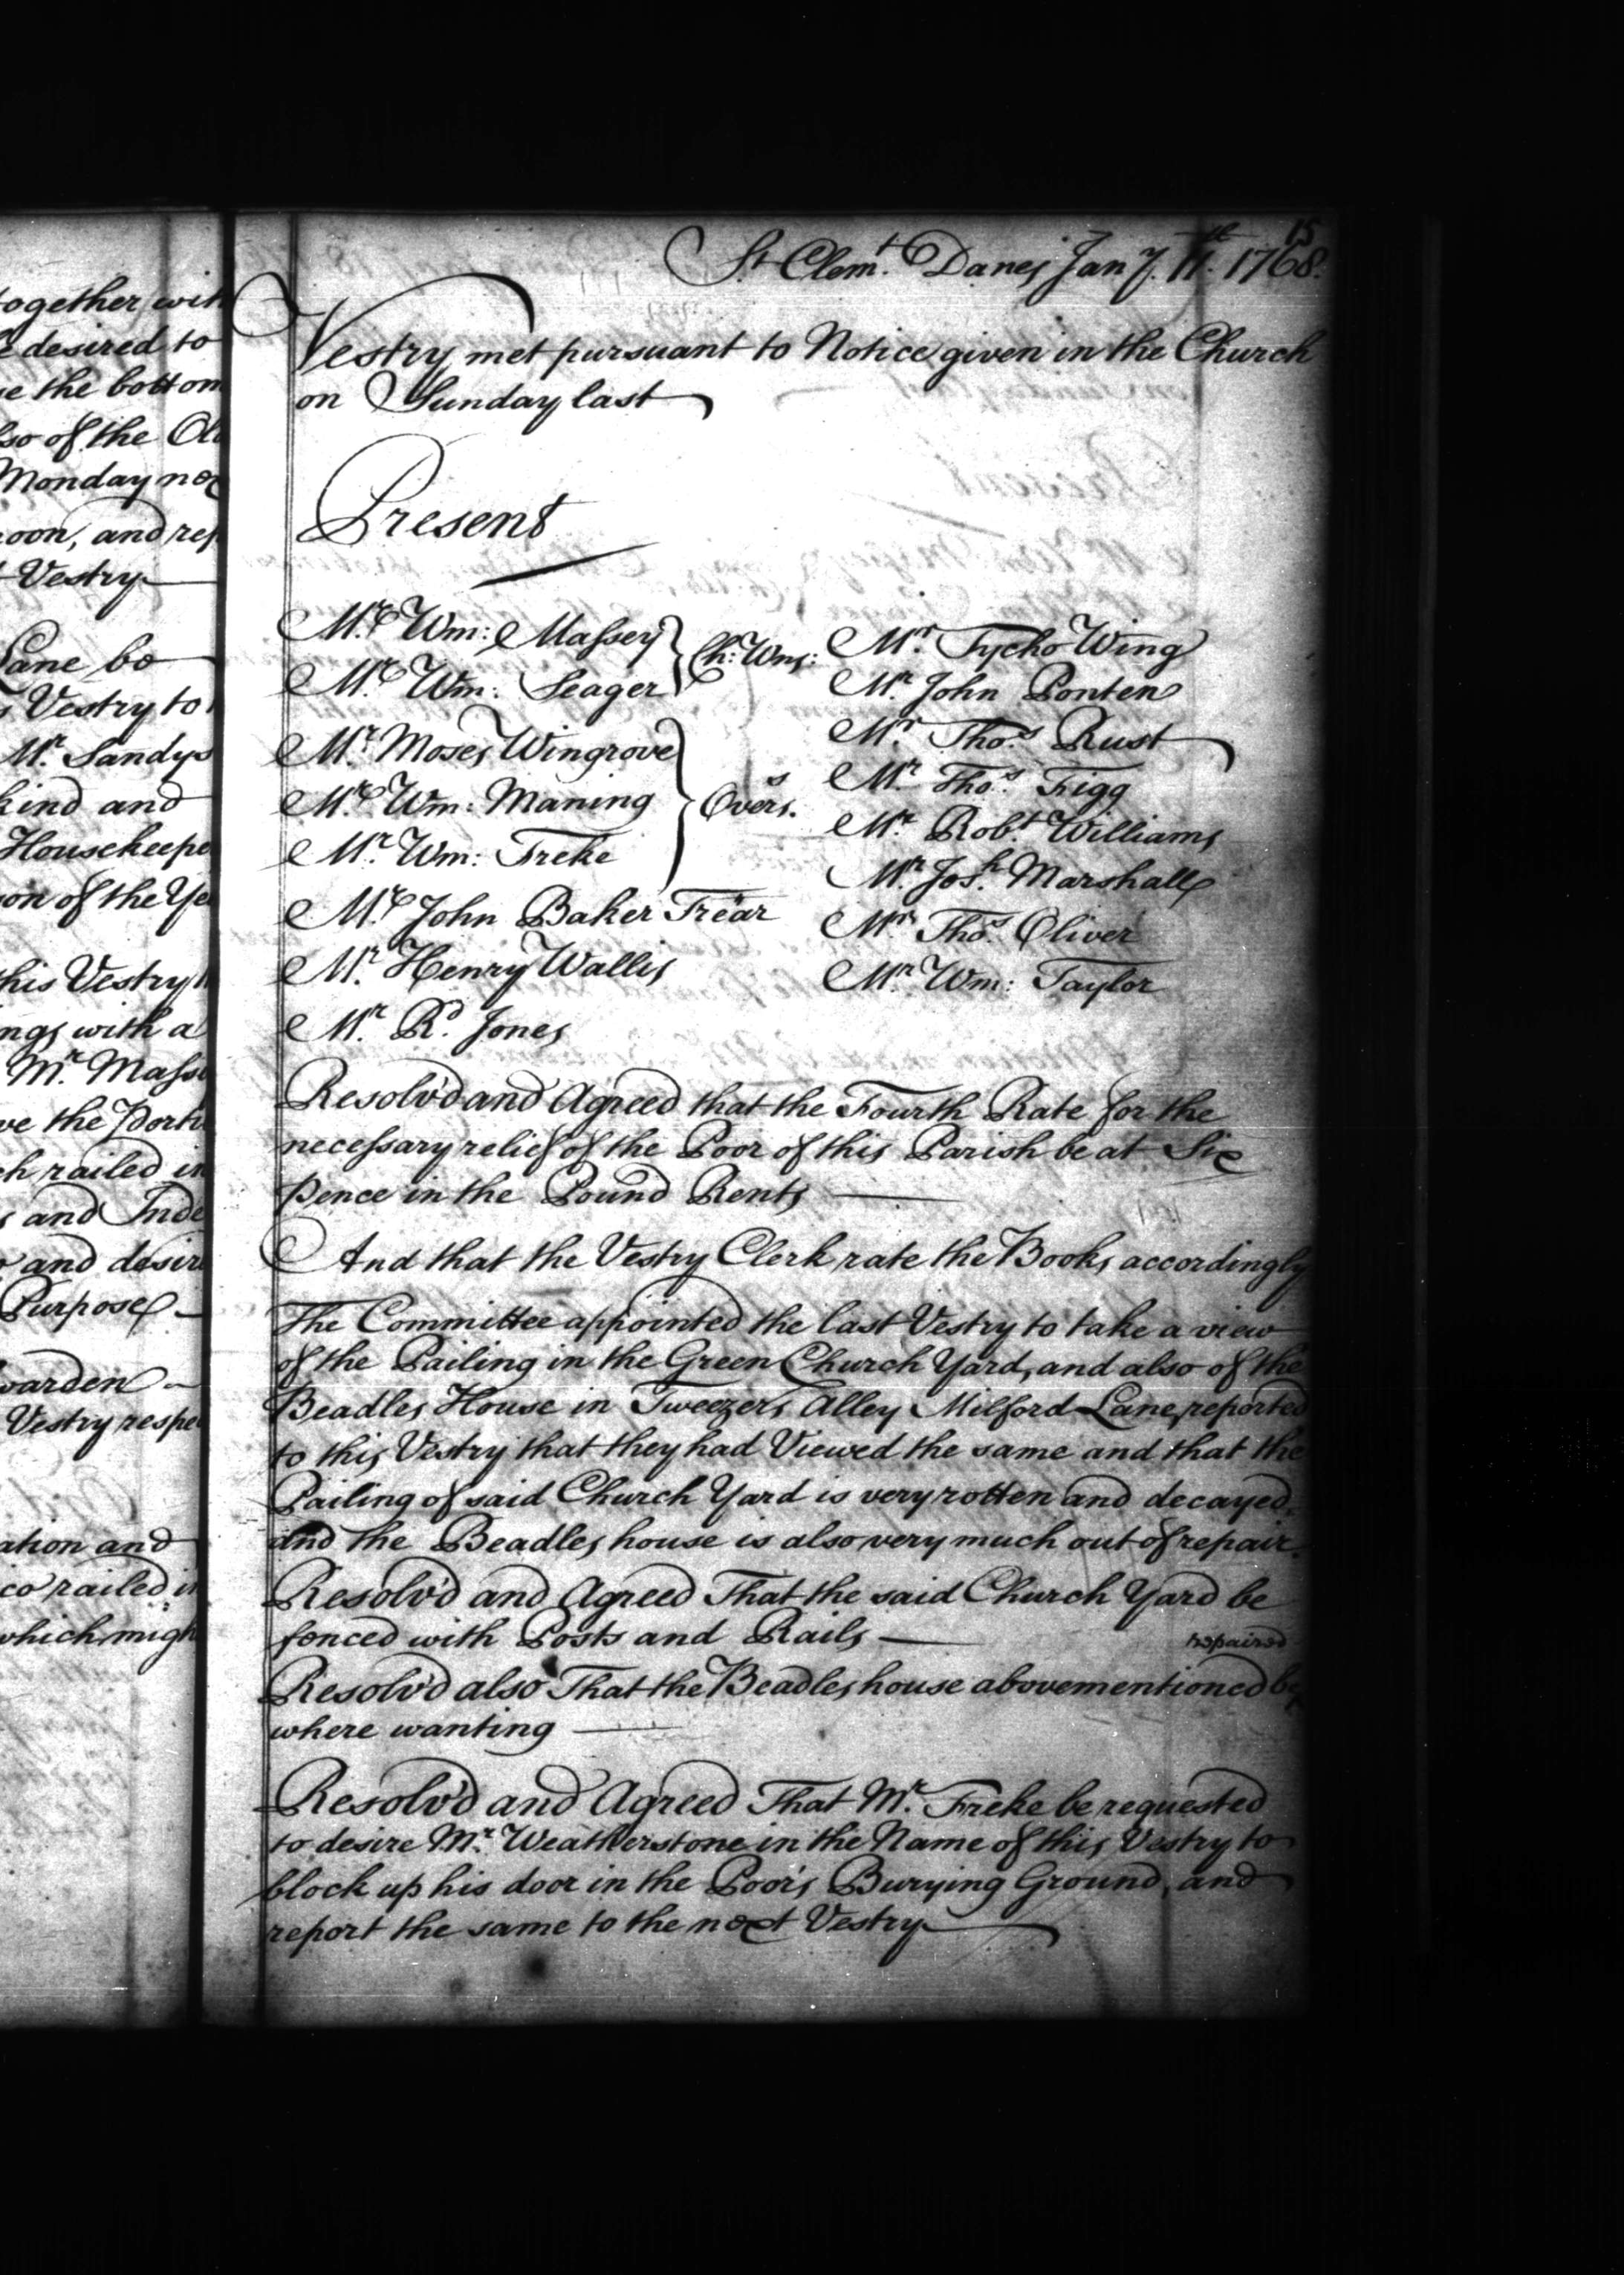 together wit
desired to
e the bottom
lso of the Ol
Monday nex
oon, and rep
Vestry
Lane be
s Vestry to
Mr. Sandys
kind and
Housekeepe
on of the Ye
his Vestry
ngs with a
Mr. Masse
ve the Porti
ch railed in
s and Inde
and desire
Purpose
warden
Vestry respe
ation and
co railed in
which migh
15
St. Clemt. Danes Jany. 11th. 1768.
Vestry met pursuant to Notice given in the Church
on Sunday last
Present
Mr. Wm: Massey } Ch: Wns: Mr. Tycho Wing
Mr. Wm: Seager Mr. John Ponten
Mr. Moses Wingrove Mr. Thos. Rust
Mr. Wm: Maning } Overs. Mr. Thos. Figg
Mr. Wm: Freke Mr. Robt. Williams
Mr. John Baker Frear Mr. Josh. Marshall
Mr. Henry Wallis Mr. Thos. Oliver
Mr. Rd. Jones Mr. Wm: Taylor
Resolv'd and Agreed that the Fourth Rate for the
necessary relief of the Poor of this Parish be at Six
pence in the Pound Rents
And that the Vestry Clerk rate the Books accordingly
The Committee appointed the last Vestry to take a view
of the Pailing in the Green Church Yard, and also of the
Beadles House in Tweezers Alley Milford Lane, reported
to this Vestry that they had Viewed the same and that the
Pailing of said Church Yard is very rotten and decayed,
and the Beadles house is also very much out of repair.
Resolv'd and Agreed That the said Church Yard be
fenced with Posts and Rails
repaired
Resolv'd also That the Beadles house abovementioned be
where wanting
Resolv'd and Agreed That Mr. Freke be requested
to desire Mr. Weatherstone in the Name of this Vestry to
block up his door in the Poor's Burying Ground, and
report the same to the next Vestry